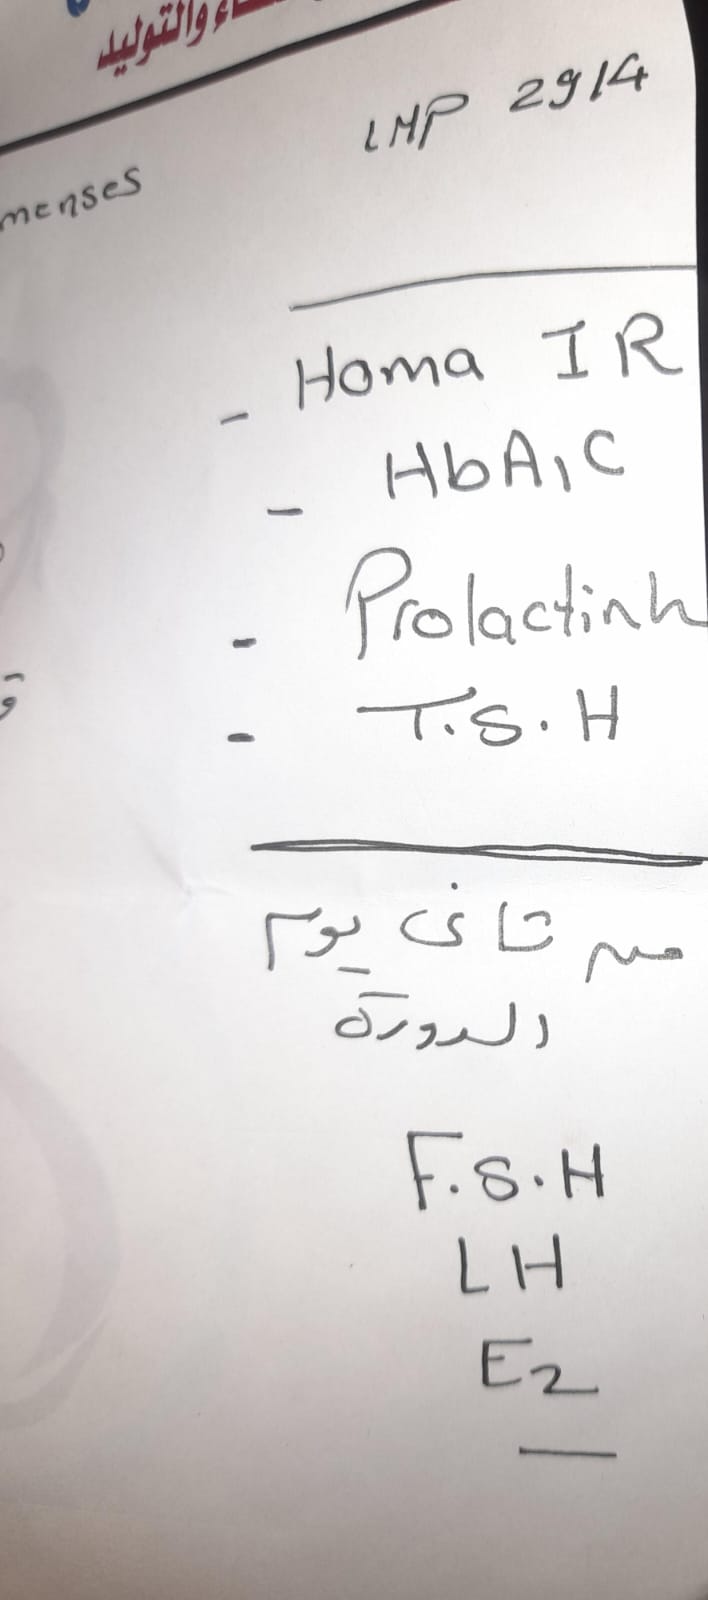 والتوليد
LMP 29/4
menses
- Homa IR
- HbA1C
- Prolactinh
- T.S.H
من ثانى يوم
الدورة
F.S.H
LH
E2